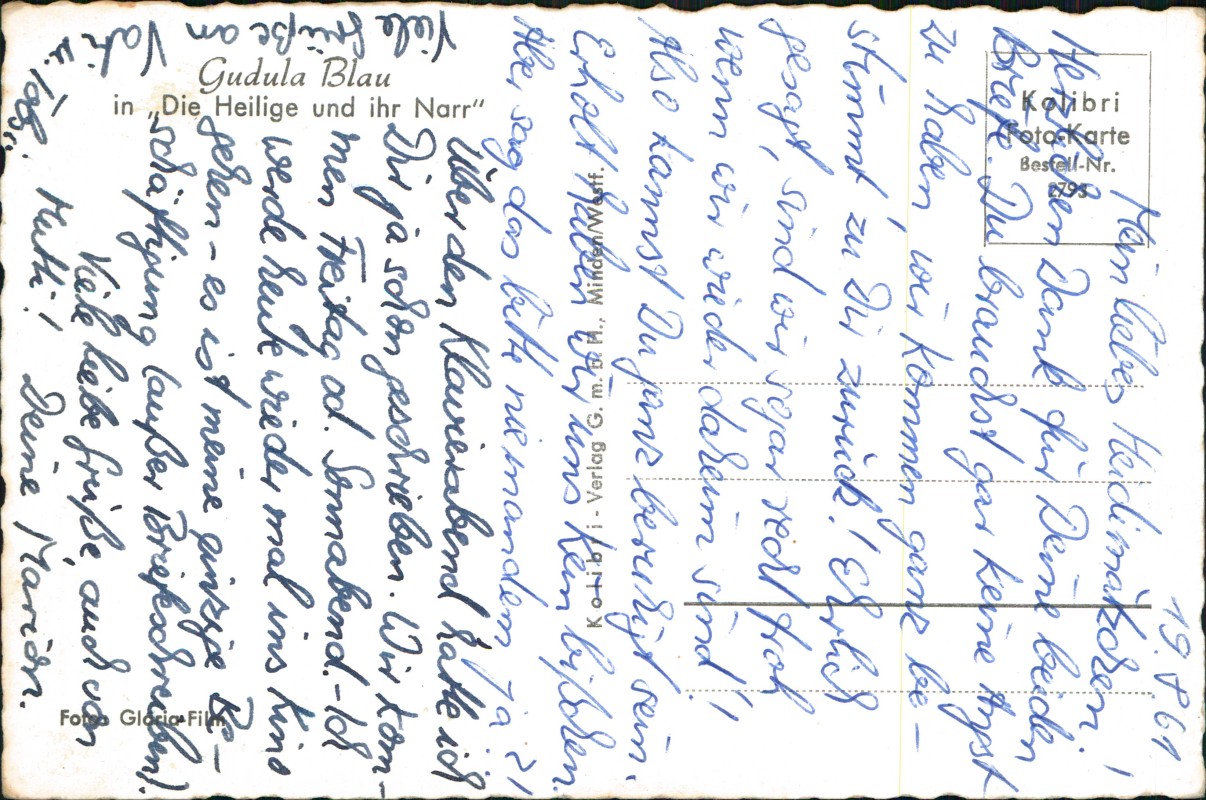 Gudula Blau
in „Die Heilige und ihr Narr“
Kolibri
Foto-Karte
Bestell-Nr.
2793
Kolibri-Verlag G.m.b.H., Minden/Westf.
Foto: Gloria-Film
19.8.61
Mein liebes Heidimädchen!
Herzlichen Dank für Deine beiden
Briefe. Du brauchst gar keine Angst
zu haben, wir kommen ganz be-
stimmt zu Dir zurück! Ehrlich
gesagt, sind wir sogar recht froh
wenn wir wieder daheim sind!
Also kannst Du ganz beruhigt sein.
Erholt haben wir uns kein bißchen.
Aber sag das bitte niemandem ja?!
Über den Klavierabend hatte ich
Dir ja schon geschrieben. Wir kom-
men Freitag od. Sonnabend. – Ich
werde heute wieder mal ins Kino
gehen – es ist meine einzige Be-
schäftigung (außer Briefschreiben).
Viele liebe Grüße, auch von
Mutti! Deine Marion.
Viele Grüße an Vati u.